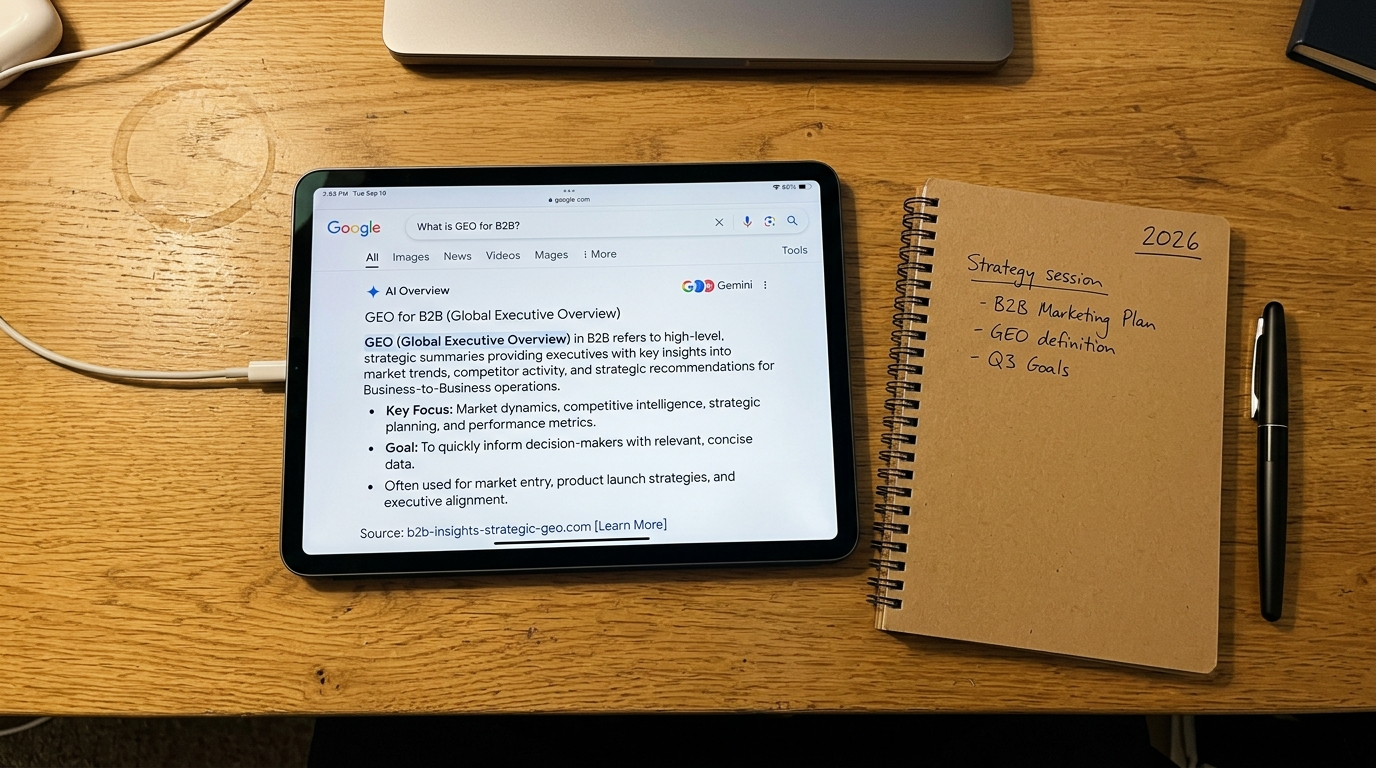 3.65 PM Tue Sep 10
60%
google.com
Google
What is GEO for B2B?
All Images News Videos Mages More
Tools
AI Overview
Gemini
GEO for B2B (Global Executive Overview)
GEO (Global Executive Overview) in B2B refers to high-level,
strategic summaries providing executives with key insights into
market trends, competitor activity, and strategic recommendations for
Business-to-Business operations.
• Key Focus: Market dynamics, competitive intelligence, strategic
planning, and performance metrics.
• Goal: To quickly inform decision-makers with relevant, concise
data.
• Often used for market entry, product launch strategies, and
executive alignment.
Source: b2b-insights-strategic-geo.com [Learn More]
2026
Strategy session
- B2B Marketing Plan
- GEO definition
- Q3 Goals